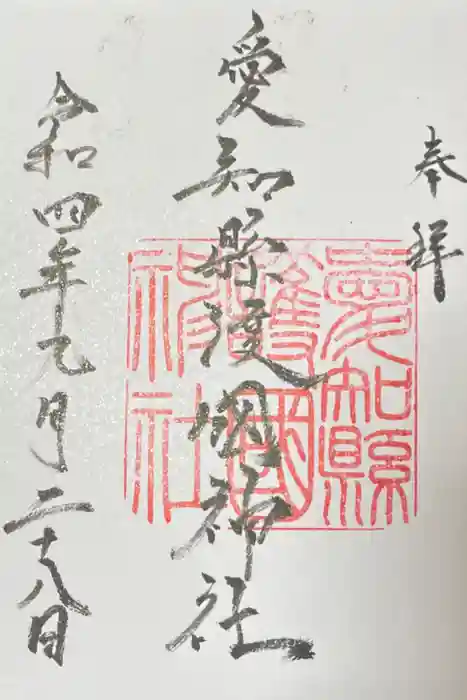 奉拝
愛知縣護国神社
愛知縣護國神社
令和四年元月二十八日